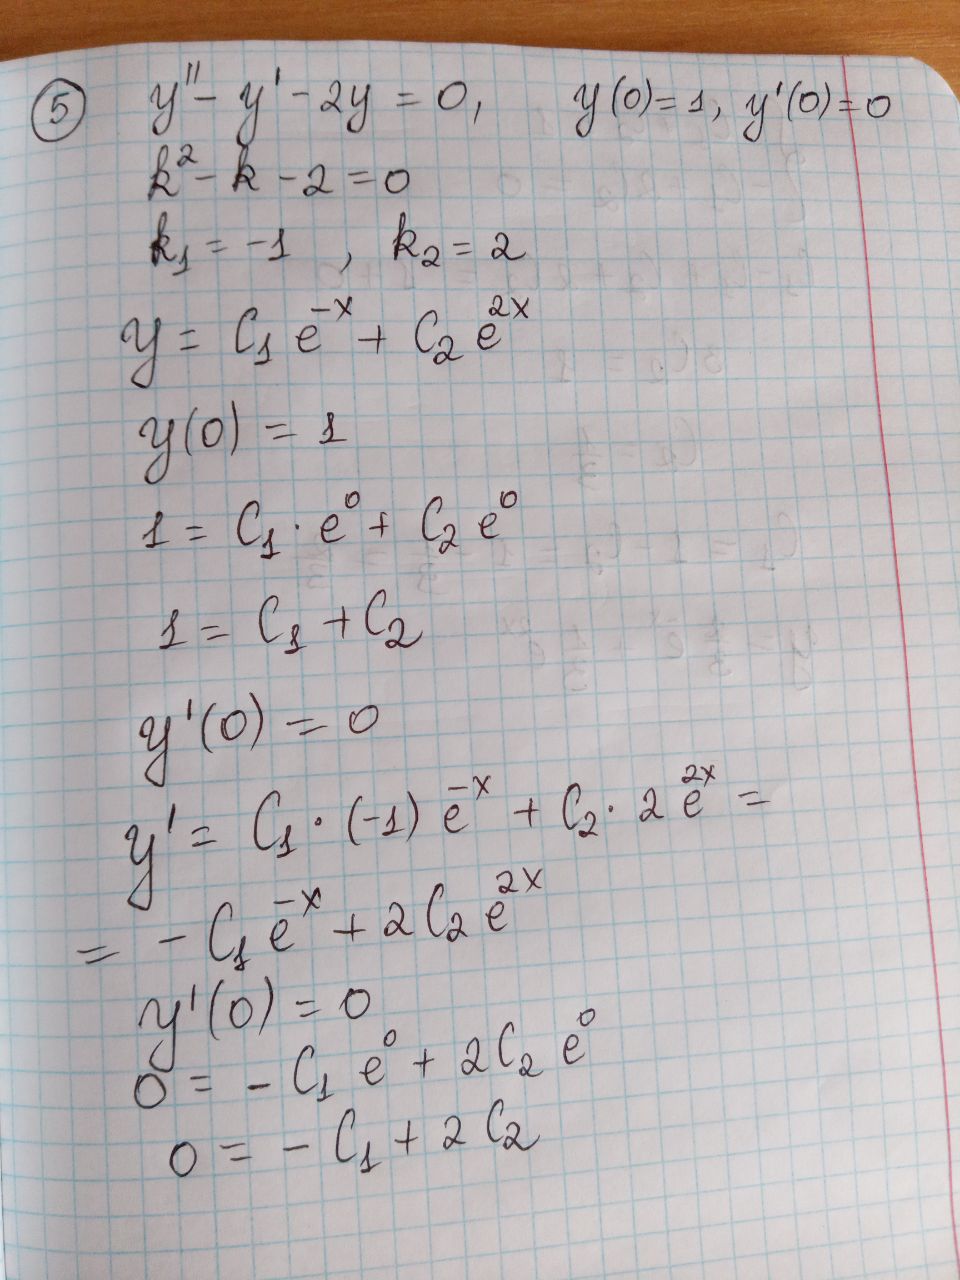 5 y'' - y' - 2y = 0, y(0)=1, y'(0)=0
k² - k - 2 = 0
k₁ = -1 , k₂ = 2
y = C₁ e⁻ˣ + C₂ e²ˣ
y(0) = 1
1 = C₁ · e⁰ + C₂ e⁰
1 = C₁ + C₂
y'(0) = 0
y' = C₁ · (-1) e⁻ˣ + C₂ · 2 e²ˣ =
= - C₁ e⁻ˣ + 2 C₂ e²ˣ
y'(0) = 0
0 = - C₁ e⁰ + 2 C₂ e⁰
0 = - C₁ + 2 C₂